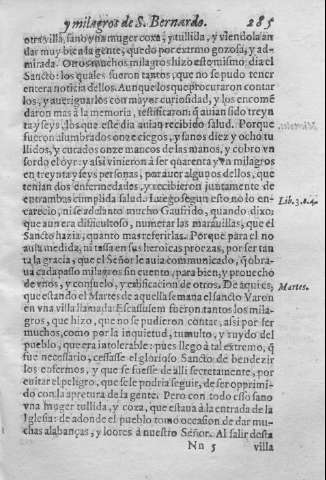 y milagros de S. Bernardo. 285
otra villa, sanò vna muger coxa, y tullida, y viendola an
dar muy bien la gente, quedò por extremo gozosa, y ad-
mirada. Otros muchos milagros hizo este mismo dia el
Sancto: los quales fueron tantos, que no se pudo tener
entera noticia dellos. Aunque los que procuraron contar
los, y aueriguarlos con mayor curiosidad, y los encomē
daron mas à la memoria, testificaron: q̃ auian sido treyn
ta y seys, los que este dia auian recibido salud. Porque
fueron alumbrados onze ciegos, y sanos diez y ocho tu
llidos, y curados onze mancos de las manos, y cobro vn
sordo el oyr: y assi vinieron à ser quarenta y vn milagros
en treynta y seys personas, por auer algunos dellos, que
tenian dos enfermedades, y recibieron juntamente de
entrambas cumplida salud. Luego segun esto no lo en-
carecio, ni se adelanto mucho Gaufrido, quando dixo:
que aun era difficultoso, numerar las marauillas, que el
Sancto hazia, quanto mas referirlas. Porque para el no
auia medida, ni tassa en sus heroicas proezas, por ser tan
ta la gracia, que el Señor le auia communicado, q̃ obra-
ua cada passo milagros sin cuento, para bien, y prouecho
de vnos, y consuelo, y edificacion de otros. De aqui es,
que estando el Martes de aquella semana el sancto Varon
en vna villa llamada: Escassulsem fueron tantos los mila-
gros, que hizo, que no se pudieron contar, assi por ser
muchos, como por la inquietud, tumulto, y ruydo del
pueblo, que era intolerable: pues llegò à tal extremo, q̃
fue necessario, cessasse el glorioso Sancto de bendezir
los enfermos, y que se fuesse de alli secretamente, por
euitar el peligro, que se le podria seguir, de ser opprimi-
do con la apretura de la gente. Pero con todo esso sano
vna muger tullida, y coxa, que estaua à la entrada de la
Iglesia: de adonde el pueblo tomo occasion de dar mu-
chas alabanças, y loores à nuestro Señor. Al salir desta
Nn 5 villa
Lib. 3. c. 4.
Martes.